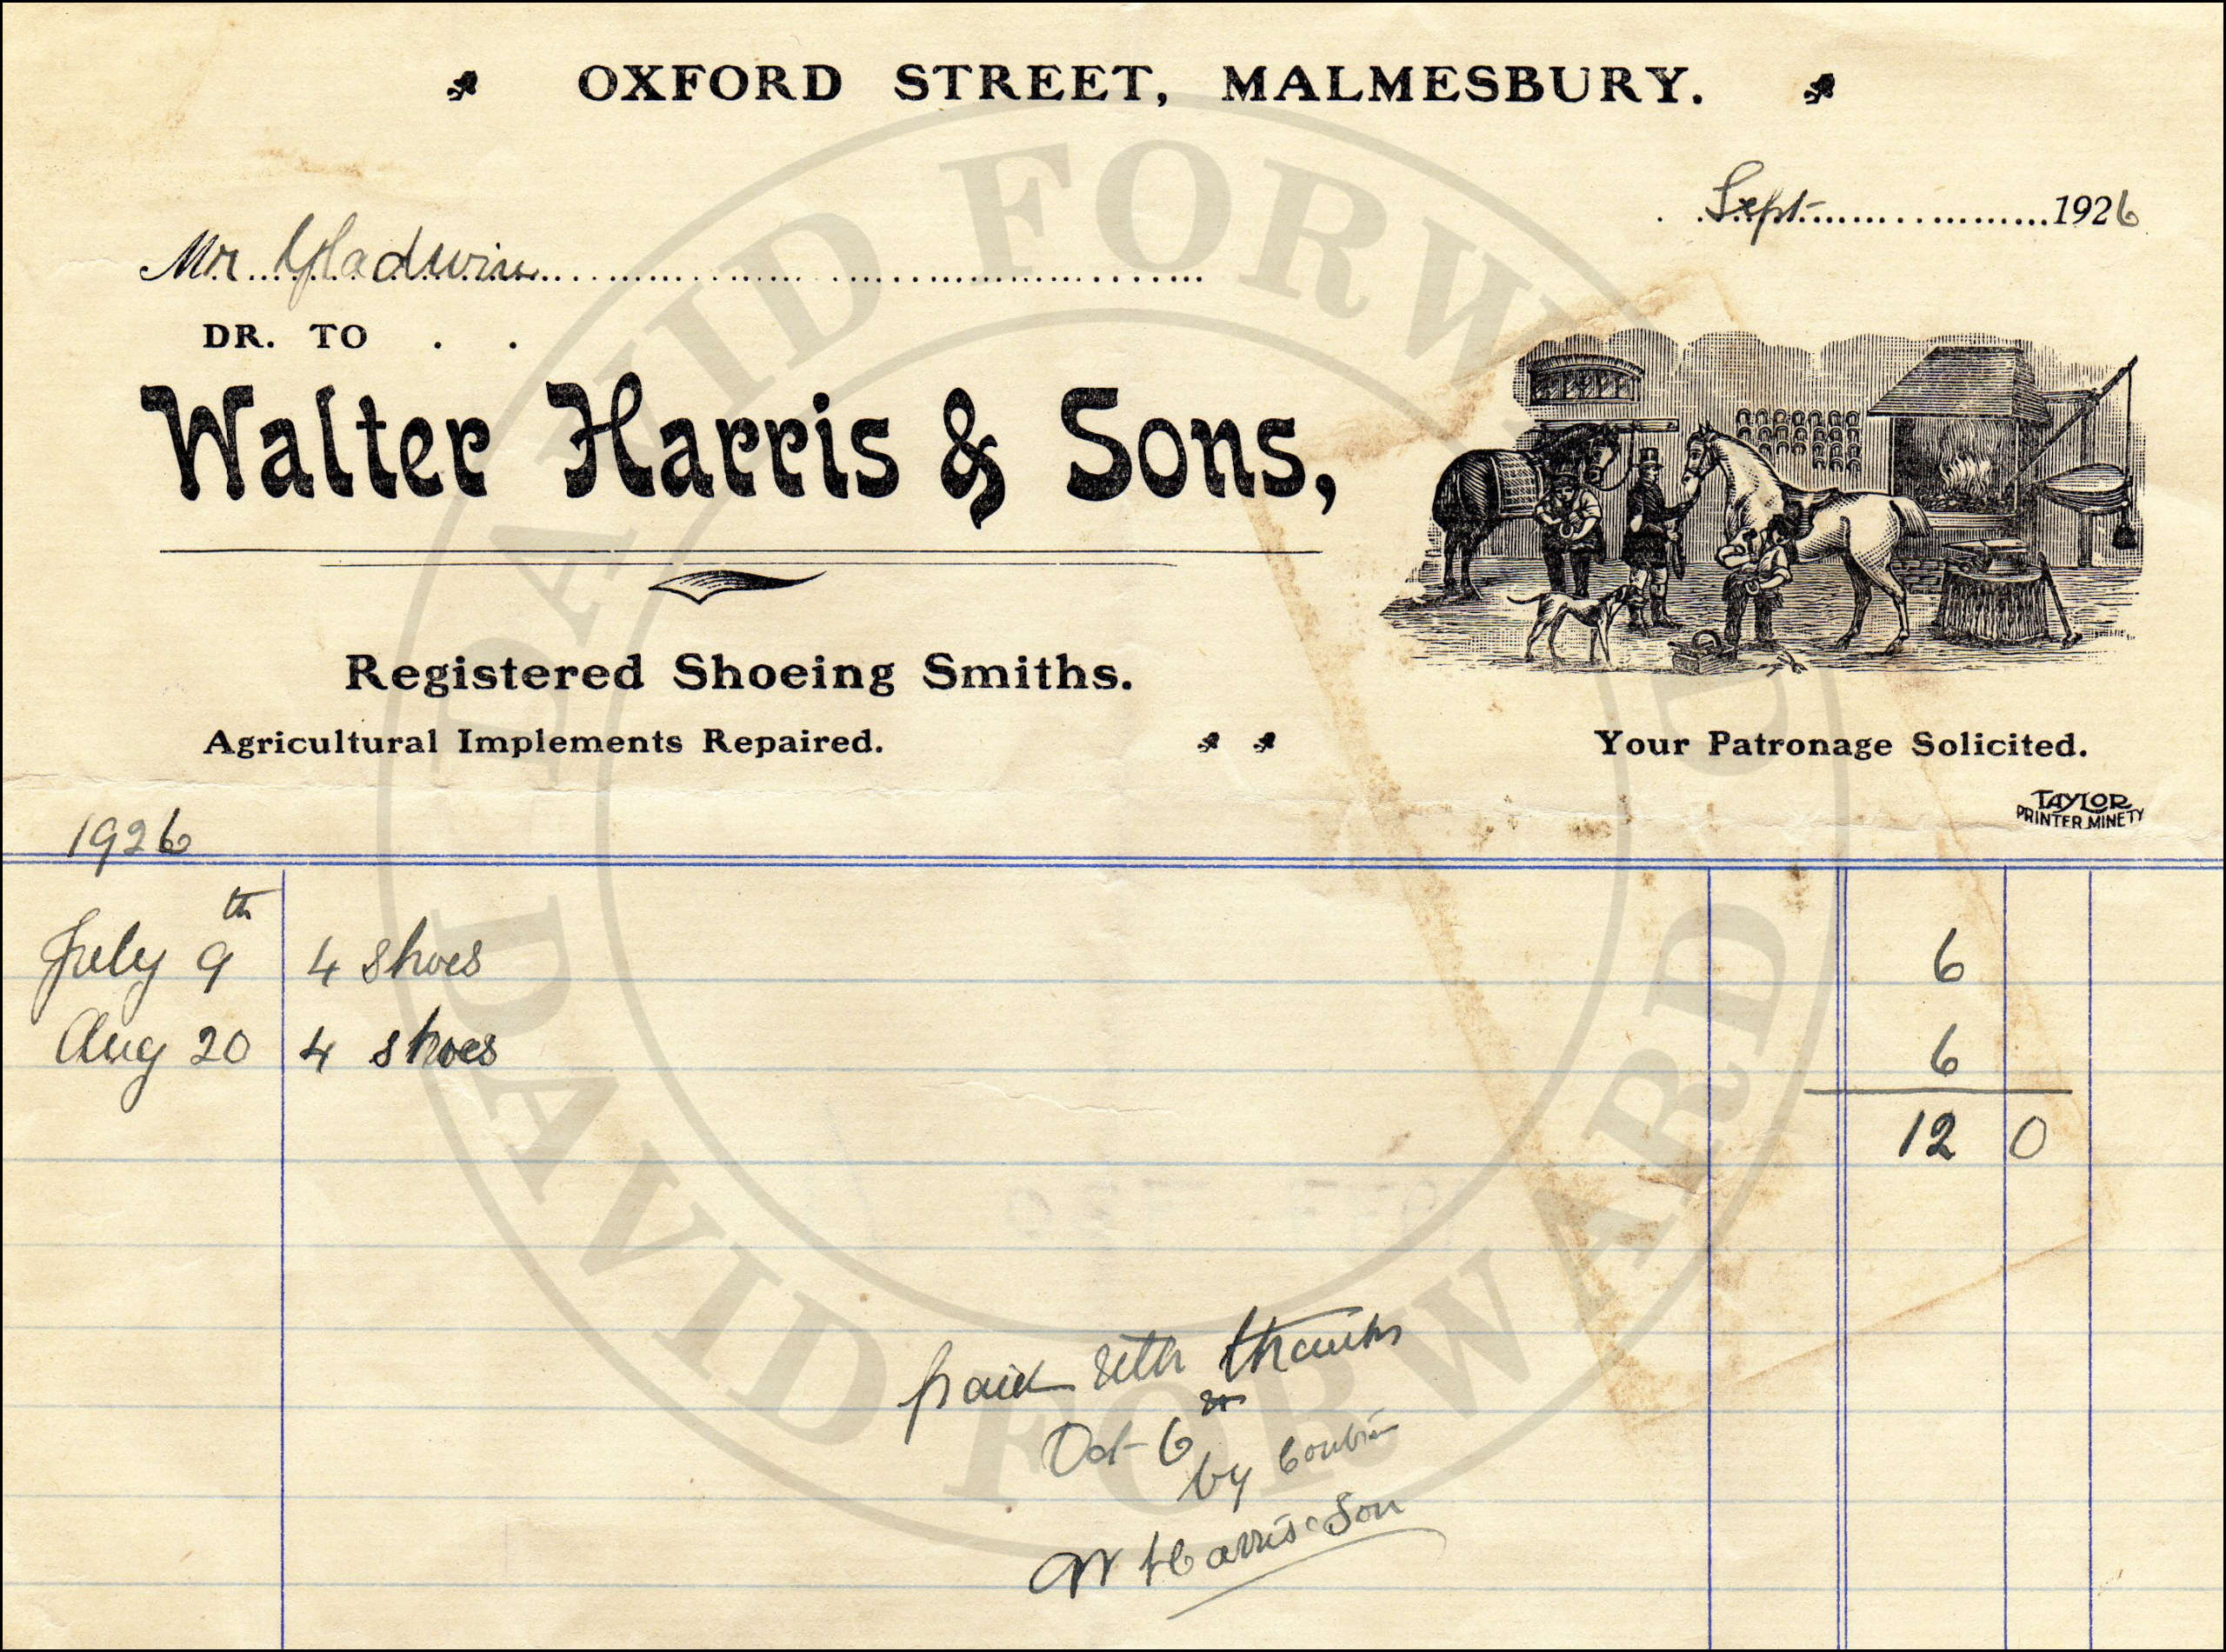 OXFORD STREET, MALMESBURY.
Sept 1926
Mr Gladwin
DR. TO . .
Walter Harris & Sons,
Registered Shoeing Smiths.
Agricultural Implements Repaired.
Your Patronage Solicited.
TAYLOR
PRINTER MINETY
1926
July 9th 4 shoes 6
Aug 20 4 shoes 6
12 0
paid with thanks
Oct 6
by
W Harris & Son
DAVID FORWARD DAVID FORWARD